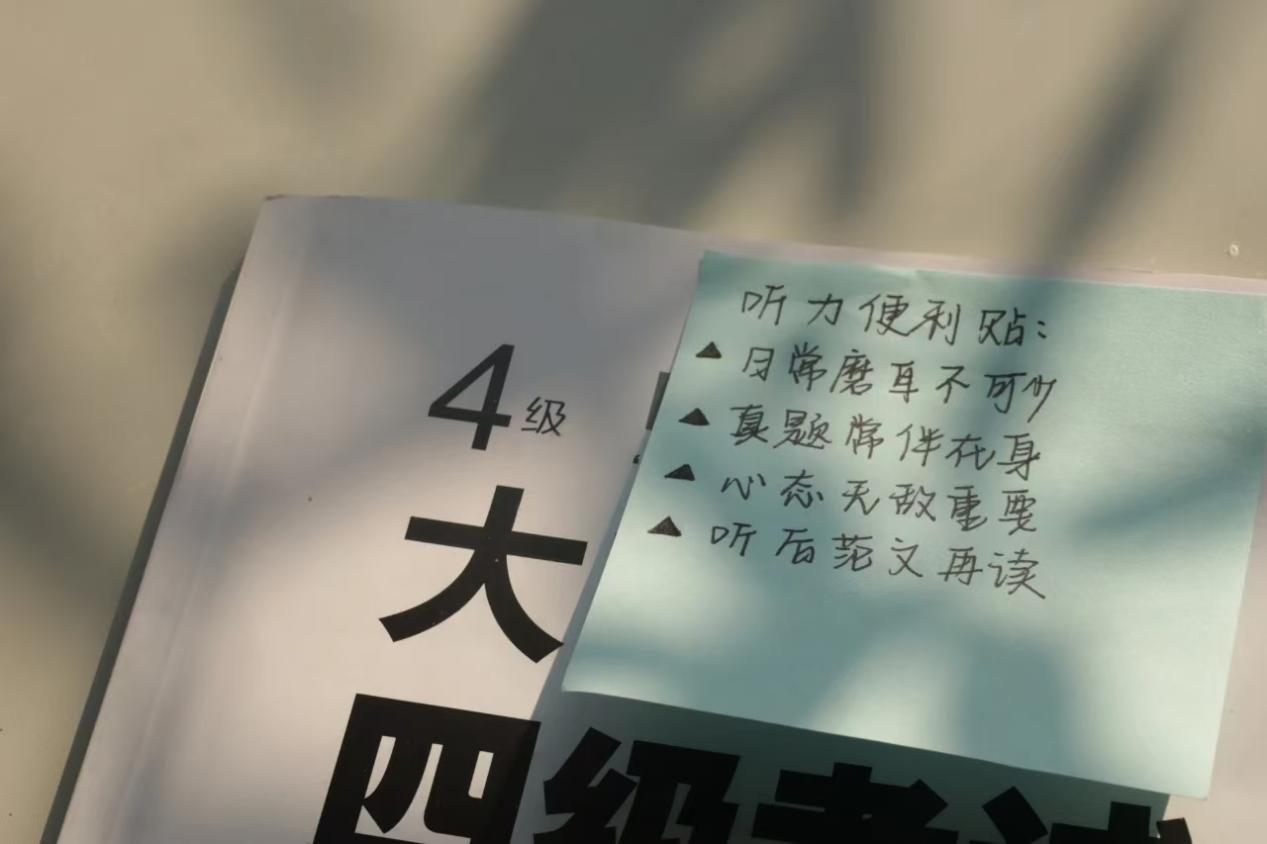 听力便利贴：
▲日常磨耳不可少
▲真题常伴在身
▲心态无敌重要
▲听后范文再读
4级
大
四级考试